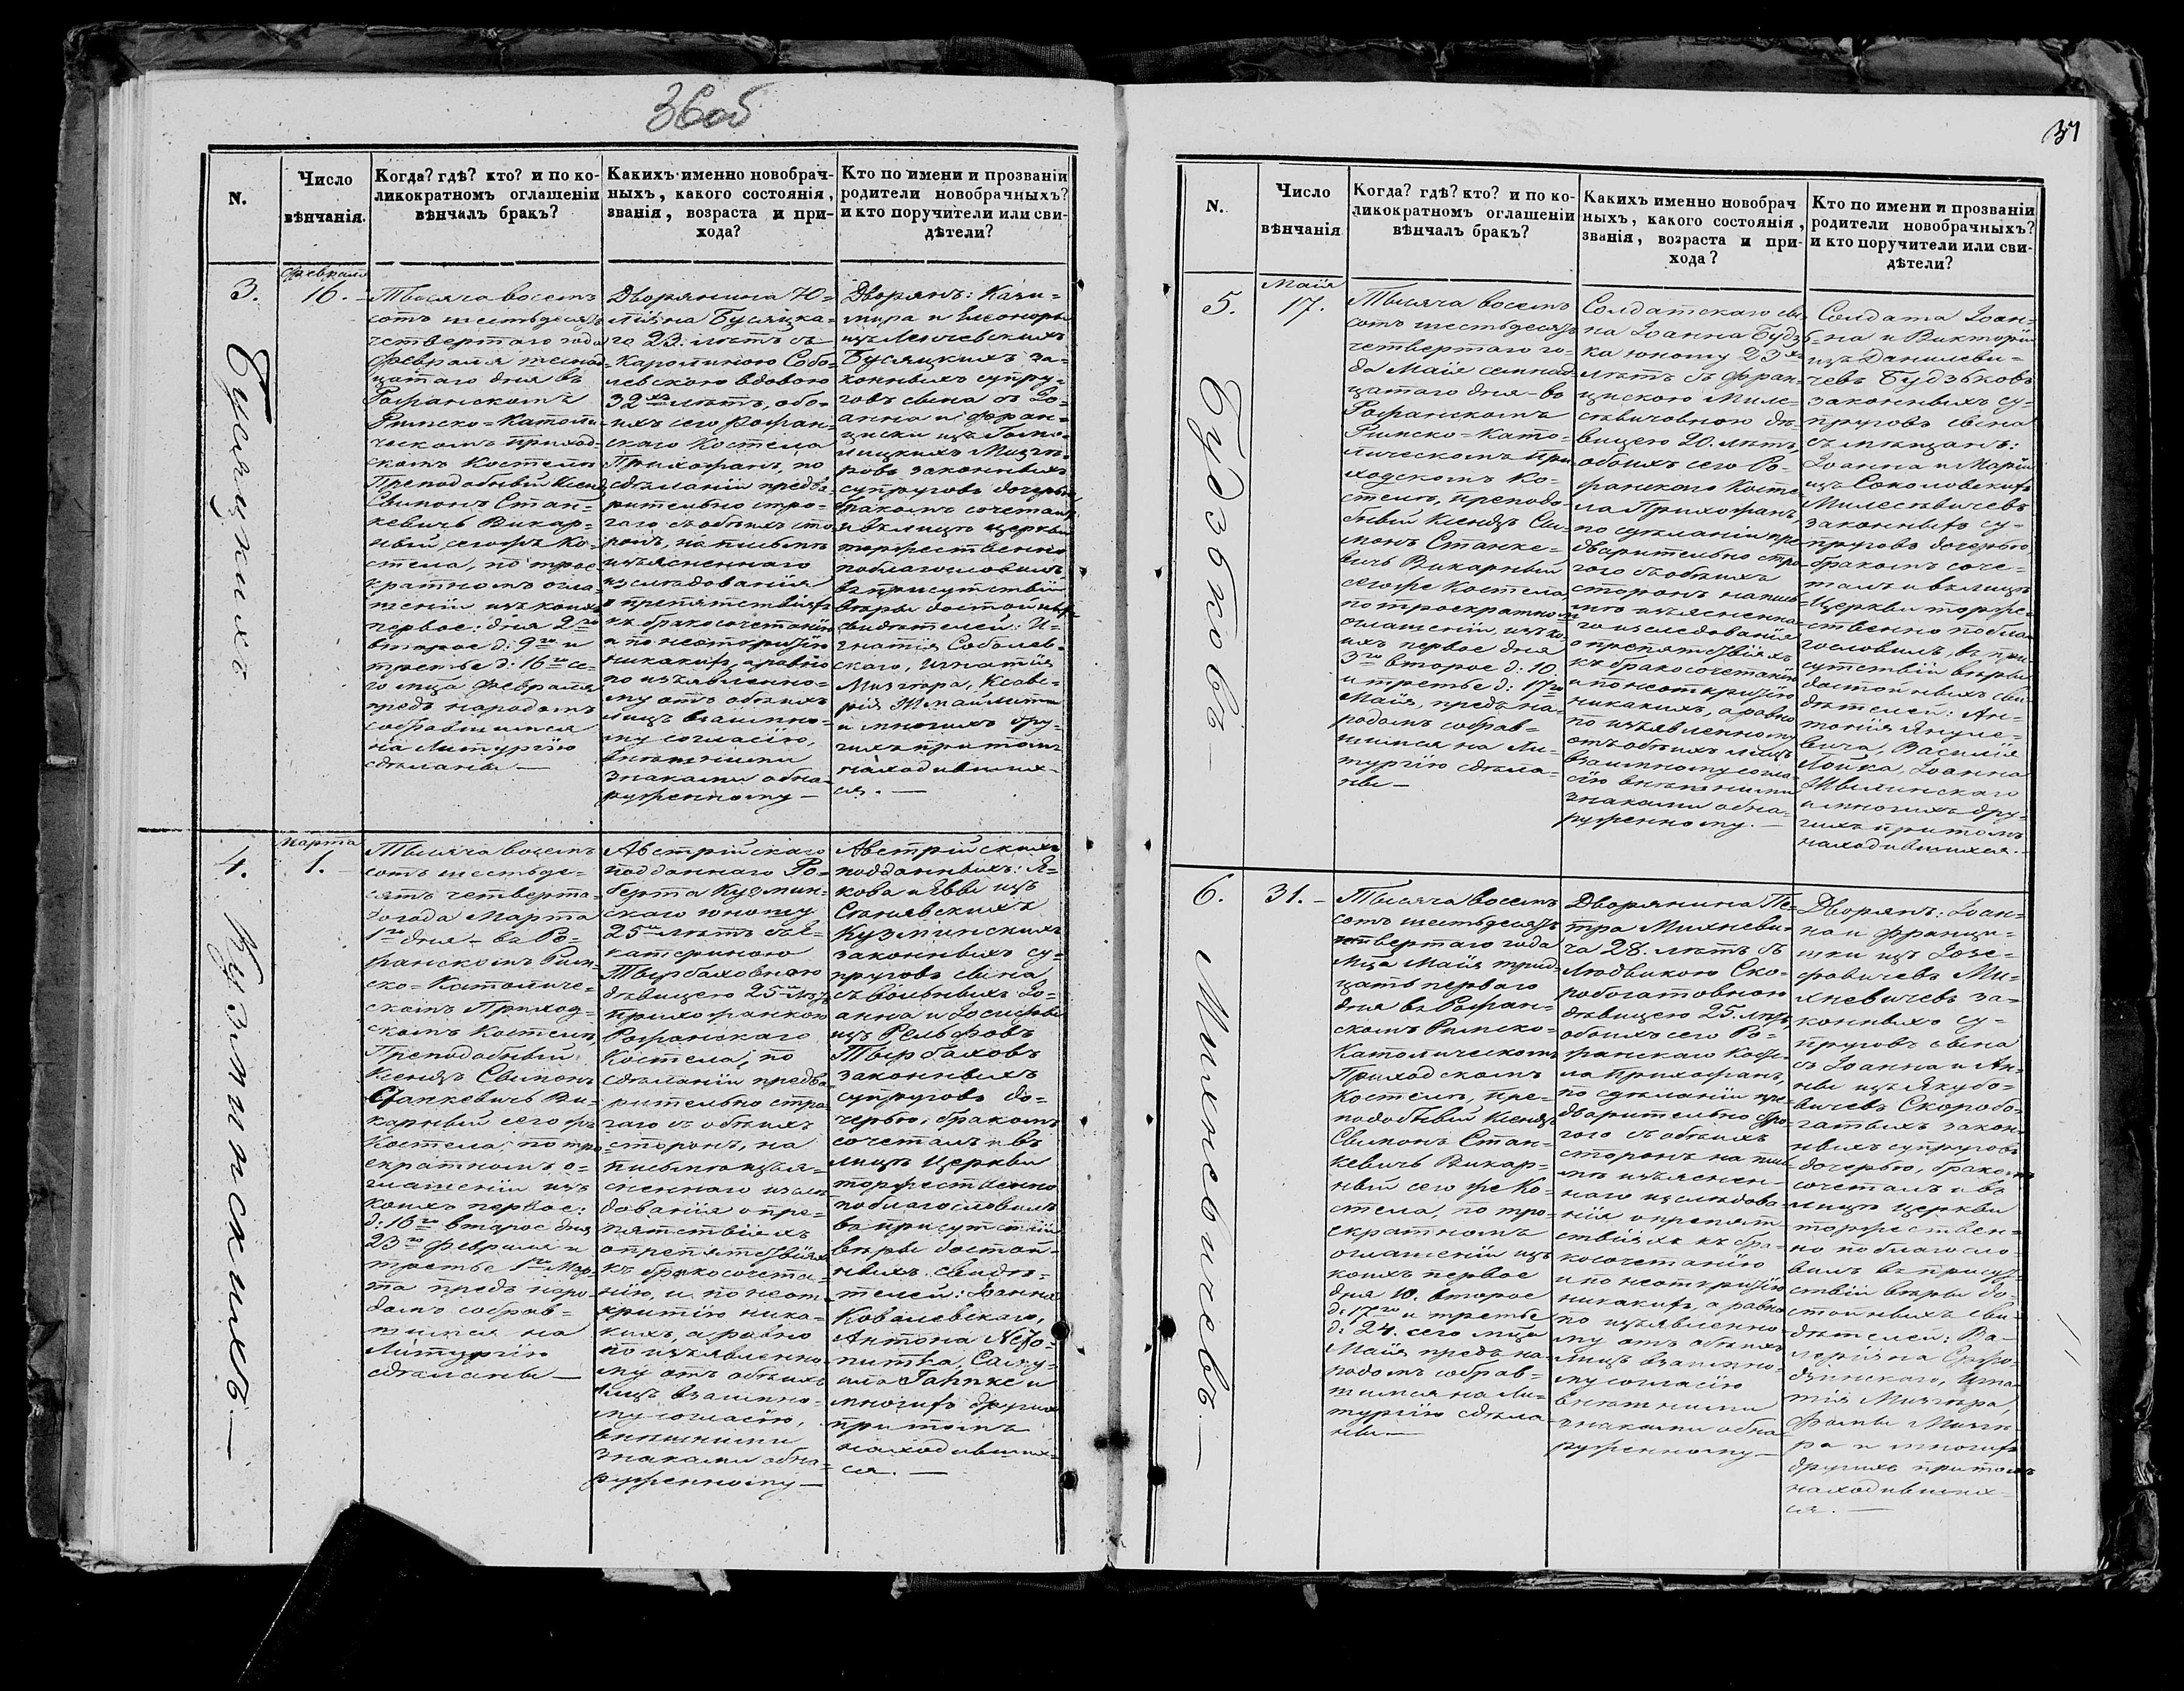 36об
N.
Число
вѣнчанія.
Когда? гдѣ? кто? и по ко-
ликократномъ оглашеніи
вѣнчалъ бракъ?
Какихъ именно новобрач-
ныхъ, какого состоянія,
званія, возраста и при-
хода?
Кто по имени и прозванію
родители новобрачныхъ?
и кто поручители или сви-
дѣтели?
3.
Бусяцкихъ
Февраля
16.
Тысяча восемь
сотъ шестьдесятъ
четвертаго года
Февраля шестнад
цатаго дня въ
Рожанскомъ
Римско=Католи
ческомъ приход-
скомъ Костелѣ
Преподобный Ксендзъ
Сымонъ Стан-
кевичъ Викар-
ный сегожъ Ко-
стела, по трое
кратномъ огла-
шеніи изъ коихъ
первое: дня 2го
второе д: 9го и
третье д: 16го се-
го мца Февраля
предъ народомъ
собравшимся
на Литургію
сдѣланы —
Дворянина Ю-
ліяна Бусяцка-
го 23. лѣтъ съ
Каролиною Собо-
левскою вдовою
32хъ лѣтъ, обо-
ихъ сего Рожан-
скаго Костела
Прихожанъ, по
сдѣланіи предва-
рительно стро-
гаго съ обѣихъ сто
ронъ, на письмѣ
изъясненнаго
изслѣдованія
о препятствіяхъ
къ бракосочетанію
а по неоткрытію
никакихъ, а равно
по изъявленно-
му отъ обѣихъ
лицъ взаимно-
му согласію,
внѣшними
знаками обна-
руженному —
Дворянъ: Кази-
мира и Элеоноры
изъ
Бусяцкихъ за-
конныхъ супру-
говъ сына съ Іо-
анна и Фран-
циски изъ
Мизгѣ-
ровъ законныхъ
супруговъ дочерью
бракомъ сочеталъ
и въ лицѣ церкви
торжественно
поблагословилъ
въ присутствіи
вѣры достойныхъ
свидѣтелей: И-
гнатія Соболев-
скаго, Игнатія
Мизгѣра, Ксаве-
рія
и многихъ дру-
гихъ при томъ
находивших-
ся. —
4.
Кузминскихъ —
Марта
1.
Тысяча восемь
сотъ шестьде-
сятъ четверта-
го года Марта
1го дня — въ Ро-
жанскомъ Рим-
ско-Католиче-
скомъ Приход-
скомъ Костелѣ
Преподобный
Ксендзъ Сымонъ
Станкевичъ Ви-
карный сегожъ
Костела, по тро
екратномъ о-
глашеніи изъ
коихъ первое:
д: 16го второе дня
23го Февраля и
третье 1го Мар-
та предъ наро-
домъ собрав-
шимся на
Литургію
сдѣланы —
Австрійскаго
подданнаго Ро-
берта Кузмин-
скаго юношу
25ти лѣтъ съ Е-
катериною
Тырбаховною
дѣвицею 25ти лѣтъ
прихожанкою
Рожанскаго
Костела, по
сдѣланіи предва
рительно стро
гаго съ обѣихъ
сторонъ, на
письмѣ изъя-
сненнаго изслѣ
дованія о пре-
пятствіяхъ
о препятствіяхъ
къ бракосочета-
нію, и по неот
крытію ника-
кихъ, а равно
по изъявленно
му отъ обѣихъ
лицъ взаимно-
му согласію,
внѣшними
знаками обна-
руженному —
Австрійскихъ
подданныхъ: Я-
кова и Эвы изъ
Кузминскихъ
законныхъ су-
пруговъ сына
съ вольныхъ Іо-
анна и Іосифы
изъ Рельфовъ
Тырбаховъ
законныхъ
супруговъ до-
черью, бракомъ
сочеталъ и въ
лицѣ Церкви
торжественно
поблагословилъ
въ присутствіи
вѣры достой-
ныхъ свидѣ-
телей: Іоанна
Ковалевскаго,
Антона
Саму-
ила и
многихъ другихъ
при томъ
находивших-
ся. —
37
N.
Число
вѣнчанія
Когда? гдѣ? кто? и по ко-
ликократномъ оглашеніи
вѣнчалъ бракъ?
Какихъ именно новобрач
ныхъ, какого состоянія,
званія, возраста и при-
хода?
Кто по имени и прозванію
родители новобрачныхъ?
и кто поручители или сви-
дѣтели?
5.
Будзьковъ —
Маія
17.
Тысяча восемь
сотъ шестьдесятъ
четвертаго го-
да Маія семнад
цатаго дня — во
Рожанскомъ
Римско=Като-
лическомъ При
ходскомъ Ко-
стелѣ, преподо-
бный Ксендзъ Сы-
монъ Станке-
вичъ Викарный
сегоже Костела
по троекратномъ
оглашеніи, изъ ко-
ихъ первое дня
3го второе д: 10
и третье д: 17го
Маія, предъ на-
родомъ собрав-
шимся на Ли-
тургію сдѣла-
ны —
Солдатскаго сы-
на Іоанна Будзь-
ка юношу 23хъ
лѣтъ съ Фран-
цискою Миле-
съвичовною дѣ-
вицею 20. лѣтъ,
обоихъ сего Ро-
жанскаго Косте-
ла Прихожанъ,
по сдѣланіи пре
дварительно стро
гого съ обѣихъ
сторонъ на пись
мѣ изъясненна-
го изслѣдованія
о препятствіяхъ
къ бракосочетанію
и по неоткрытію
никакихъ, а равно
по изъявленному
отъ обѣихъ лицъ
взаимному согла-
сію внѣшними
знаками обна-
руженному. —
Солдата Іоан-
на и Викторіи
изъ Данилеви-
чевъ Будзьковъ
законныхъ су-
пруговъ сына
съ мѣщанъ:
Іоанна и Маріи
изъ Соколовскихъ
Милесѣвичевъ
законныхъ су-
пруговъ дочерью
бракомъ соче-
талъ и въ лицѣ
Церкви торже-
ственно побла-
гословилъ, въ при-
сутствіи вѣры
достойныхъ сви-
дѣтелей: Ан-
тонія Януле-
вича, Василія
Лойка, Іоанна
и многихъ дру-
гихъ при томъ
находившихся. —
6.
Михневичевъ —
31. —
Тысяча восемь
сотъ шестьдесятъ
четвертаго года
Мца Маія трид
цать перваго
дня въ Рожан-
скомъ Римско-
Католическомъ
Приходскомъ
Костелѣ, Пре-
подобный Ксендзъ
Сымонъ Стан-
кевичъ Викар-
ный сегоже Ко-
стела, по тро-
екратномъ
оглашеніи изъ
коихъ первое
дня 10. второе
д: 17го и третье
д: 24. сего мца
Маія предъ на-
родомъ собрав-
шимся на Ли-
тургію сдѣла
ны —
Дворянина Пе-
тра Михневи-
ча 28. лѣтъ съ
Людвикою Ско-
робогатовною
дѣвицею 25. лѣтъ,
обоихъ сего Ро-
жанскаго Косте-
ла Прихожанъ,
по сдѣланіи пре-
дварительно стро-
гого съ обѣихъ
сторонъ на пись
мѣ изъяснен-
наго изслѣдова-
нія о препят-
ствіяхъ къ бра-
косочетанію
и по неоткрытію
никакихъ, а равно
по изъявленно-
му отъ обѣихъ
лицъ взаимно-
му согласію
внѣшними
знаками обна-
руженному —
Дворянъ: Іоан-
на и Францы-
шки изъ Іозе-
фовичевъ Ми-
хневичевъ за-
конныхъ су-
пруговъ сына
съ Іоанна и Ан-
ны изъ Якубо-
вичевъ Скоробо-
гатыхъ закон-
ныхъ супруговъ
дочерью, бракомъ
сочеталъ и въ
лицѣ церкви
торжествен-
но поблагосло-
вилъ въ присут-
ствіи вѣры до-
стойныхъ сви-
дѣтелей: Ва-
леріяна
Игна-
тія Мизгѣра,
Фомы Мизгѣ-
ра и многихъ
другихъ при томъ
находивших-
ся. —